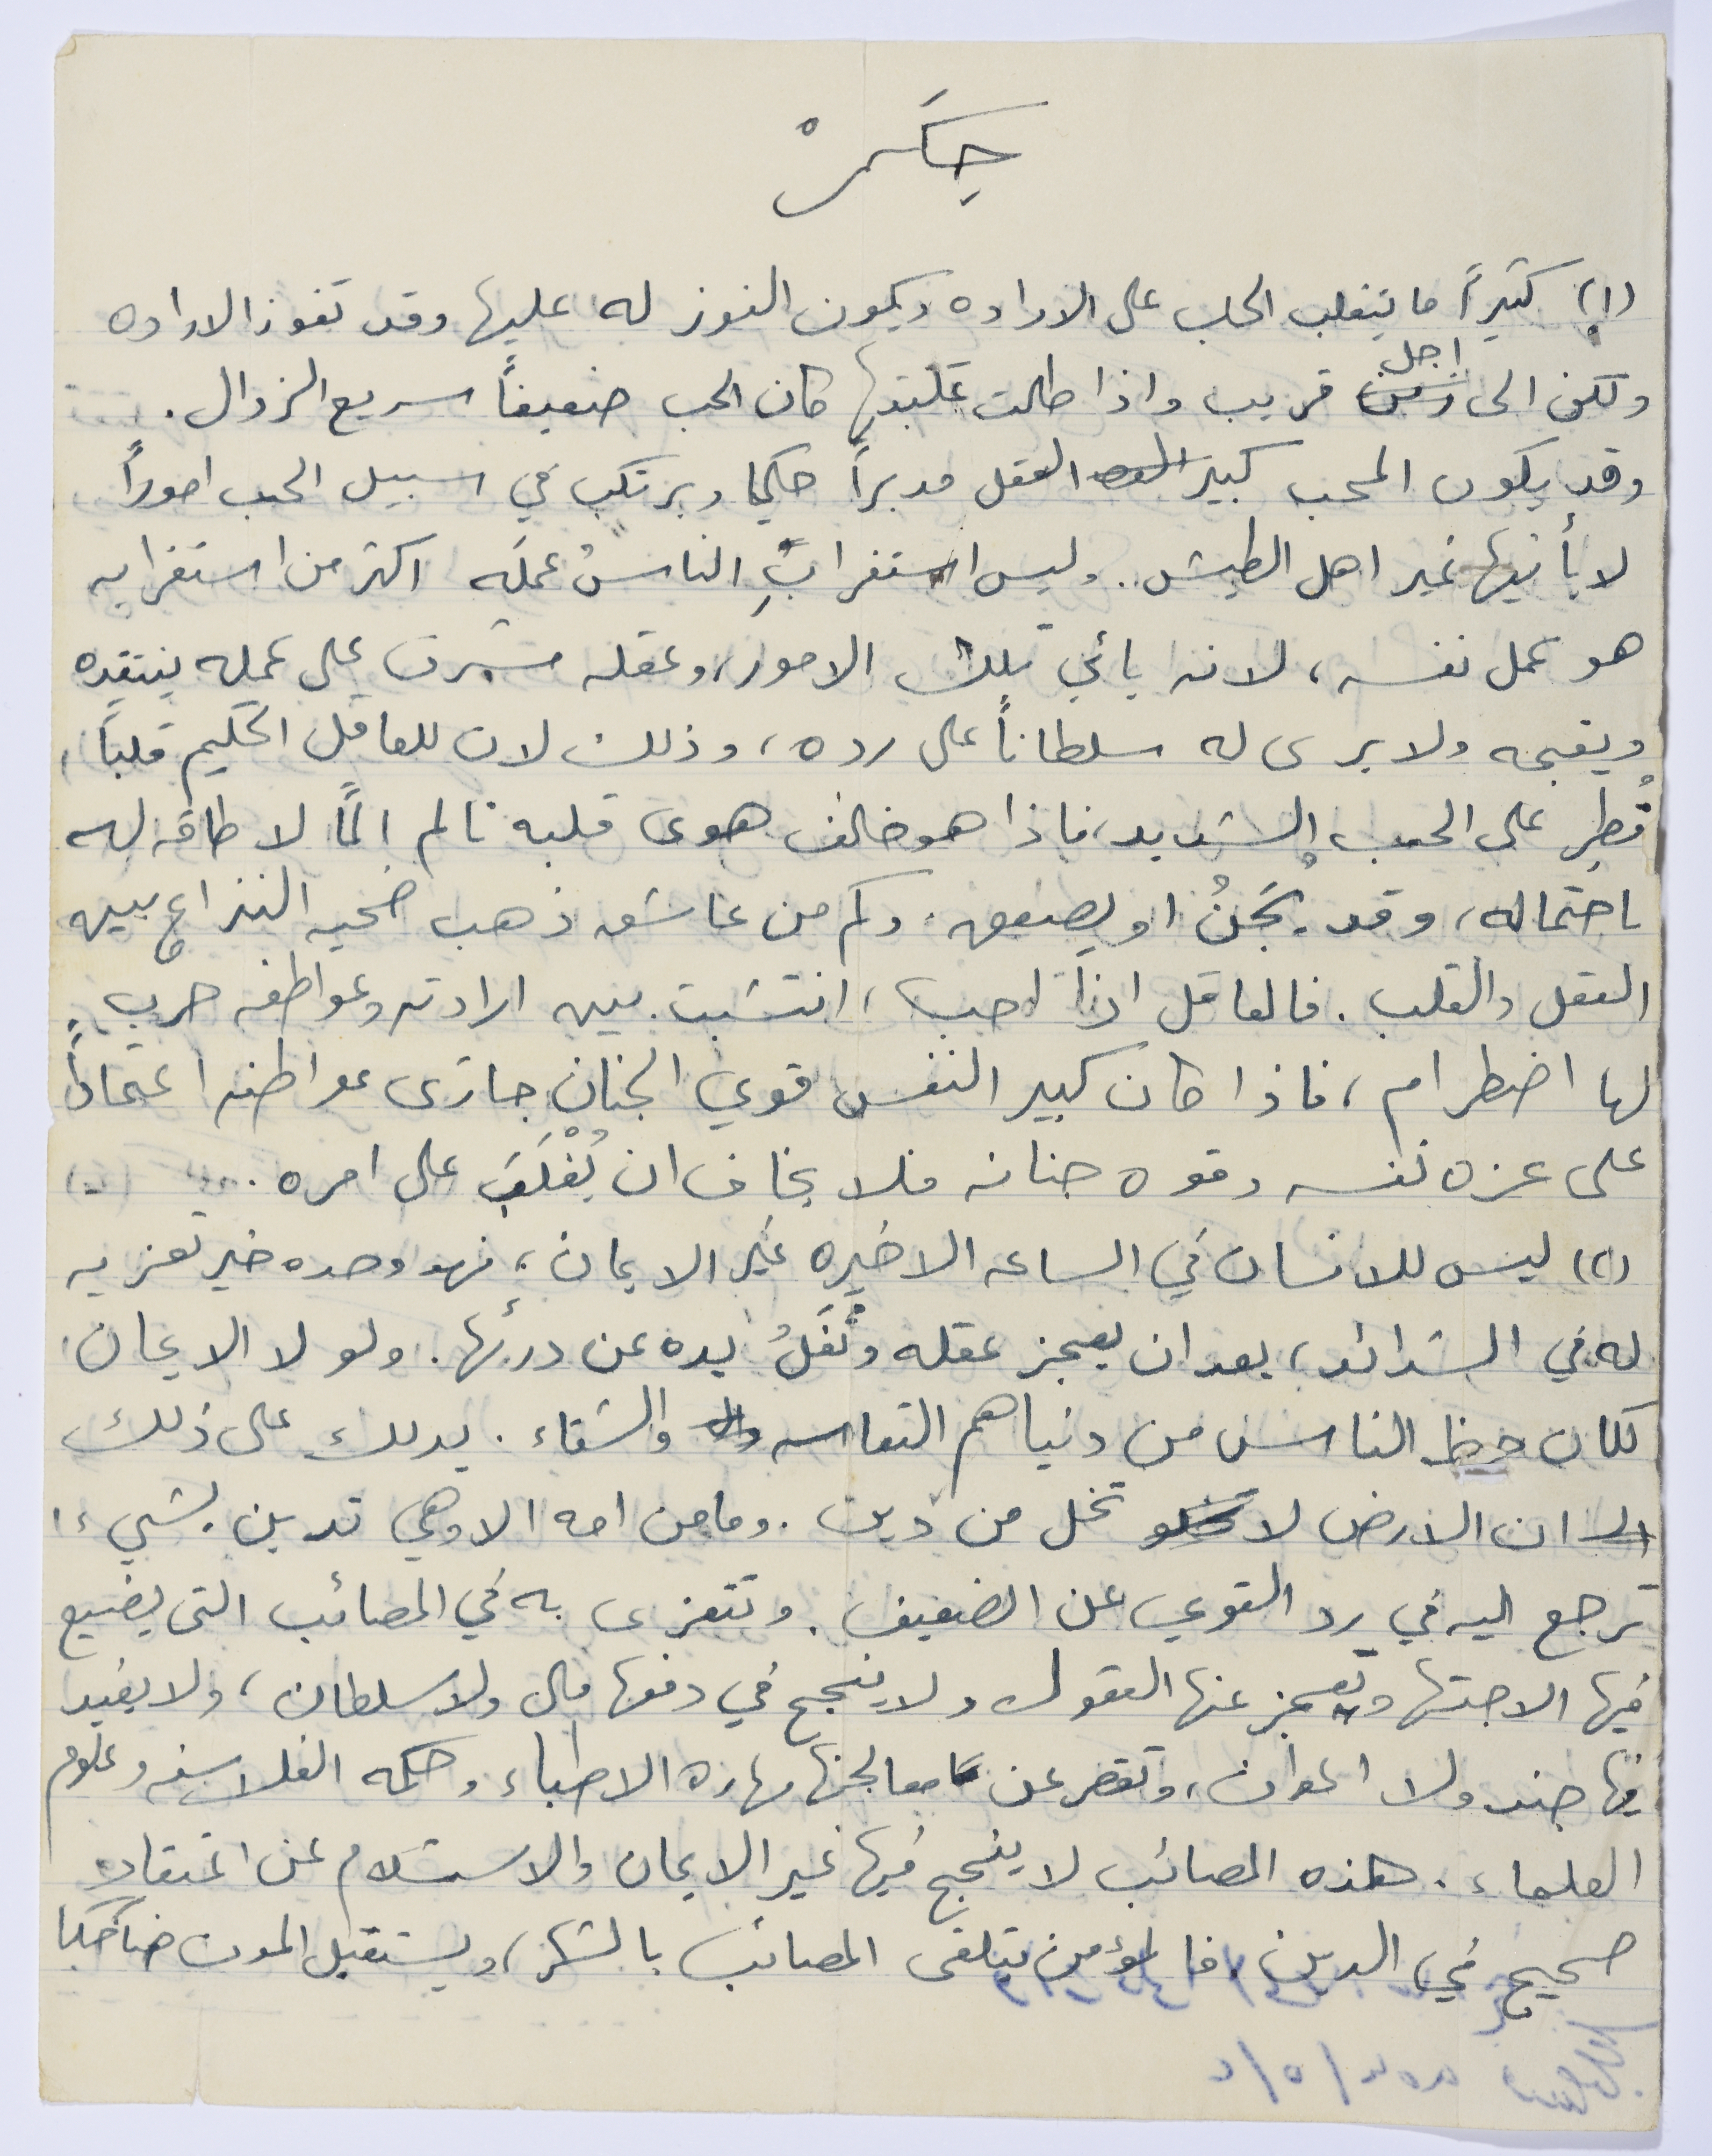 حِكَمْ
(١) كثيراً ما يتغلب الحب على الاراده ويكون الفوز له عليها وقد تفوز الاراده
ولكن الى زمن اجل قريب واذا طالت غلبتها كان الحب ضعيفاً سريع الزوال .
وقد يكون المحب كبير العقل مدبراً حكيما ويرتكب في سبيل الحب اموراً
لا يأتيها غير اهل الطيش .. وليس استغرابُ الناسُ عملَه اكثر من استغرابه
هو عمل نفسه ، لانه يأتي تلك الامور ، وعقله مشرف على عمله ينتقده
ويقبحه ولا يرى له سلطاناً على رده ، وذلك لان للعاقل الحكيم قلباً ،
فُطِر على الحب الشديد ، فاذا هو خالف هوى قلبه تالم الماً لا طاقه له
باحتماله ، وقد يُجَنُ او يصعق . وكم من عاشق ذهب ضحيه النزاع بين
العقل والقلب . فالعاقل اذا احب ، انتشبت بين ارادته وعواطفه حرب
لها اضطرام ، فاذا كان كبير النفس قوي الجنان جارى عواطفه اعتماداً
على عزه نفسه وقوه جنانه فلا يخاف ان يُغْلَبَ على امره .
(٢) ليس للانسان في الساعه الاخيره غير الايمان ، فهو وحده خير تعزيه
له في الشدائد ، بعد ان يعجز عقله وتُغَلُ يده عن درئها . ولولا الايمان
لكان حظ الناس من دنياهم التعاسه والشقاء . يدلك على ذلك
ان الارض لا تخلو تخل من دين . وما من امه الا وهي تدين بشيء ،
ترجع اليه في رد القوي عن الضعيف . وتتعزى به في المصائب التي يضيع
فيها الاجتها وتعجز عنها العقول ولا ينجح في دفعها مال ولا سلطان ، ولا يفيد
فيها جند ولا اعوان ، وتقصر عن معالجتها مهاره الاطباء وحكمه الفلاسفه وعلوم
العلماء . هذه المصائب لا ينجح فيها غير الايمان والاستسلام عن اعتقاد
صحيح في الدين . فالمؤمن يتلقى المصائب بالشكر ، ويستقبل الموت ضاحكا